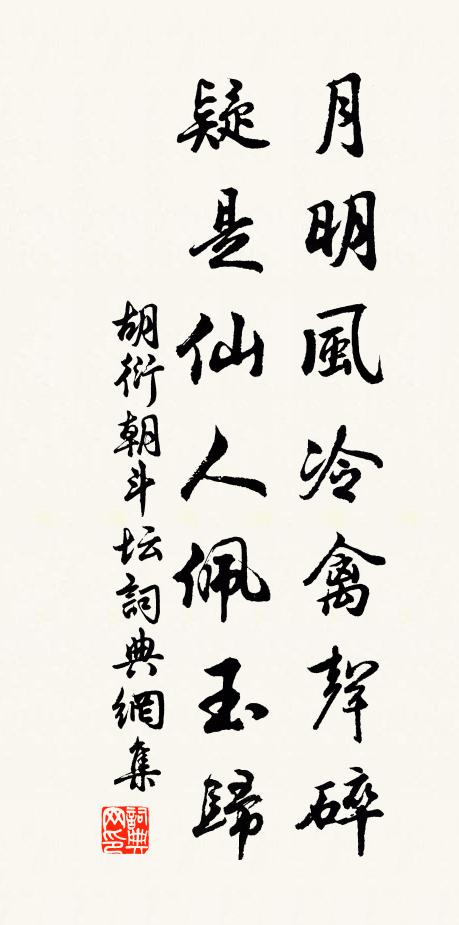 月明風冷禽聲碎
疑是仙人佩玉歸
胡衍朝斗坛詞典網集
詞典
网印